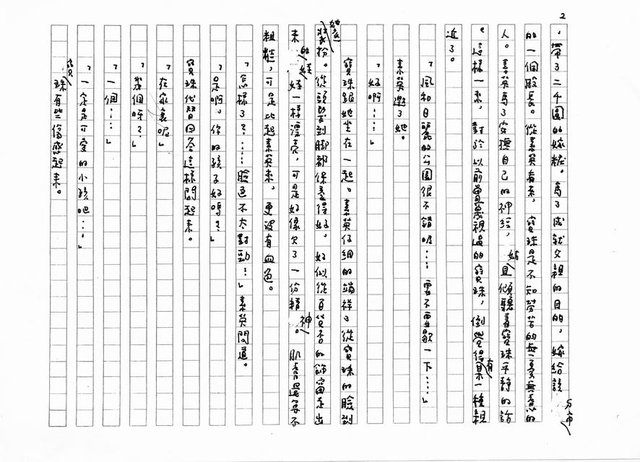 2
，帶了二千圓的嫁粧。為了成就父親的目的，嫁給該
的一個股長。從素英看來，寶珠是不知勞苦的無憂無慮的
人。素英為了安撫自己的神經，姑且傾聽著寶珠平靜的話
。這樣一來，對於以前蔑視過的寶珠，倒覺得有某一種親
近了。
「風和日麗的公園很不錯呢……要不要歇一下……」
素英邀了她。
「好啊……」
寶珠跟她坐在一起。素英仔細的端祥了從寶珠的臉到
裝扮。從頭髮到腳都保養得好。好似從百貨店的飾窗走出
來的娃娃一樣漂亮，可是好像欠了一份精神。肌膚還不
粗糙，可是比起素英來，更沒有血色。
「怎樣了？……臉色不太對勁？」素英問道。
「是啊，你的孩子好嗎？」
寶珠代替回答這樣問起來。
「在家裏呢」
「幾個呀？」
「一個……」
「一定是可愛的小孩吧……」
寶珠有些傷感起來。